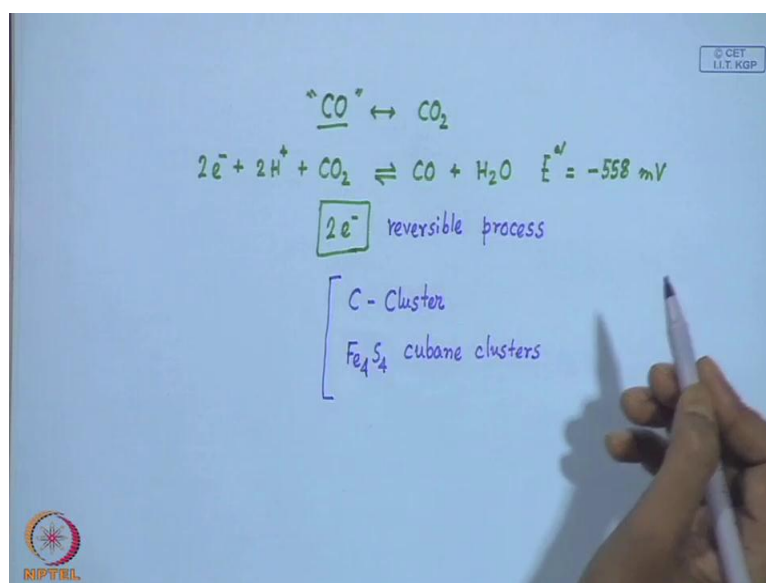 © CET
I.I.T. KGP
"CO" ↔ CO₂
2e⁻ + 2H⁺ + CO₂ ⇌ CO + H₂O E°' = -558 mV
2e⁻ reversible process
C - Cluster
Fe₄S₄ cubane clusters
NPTEL